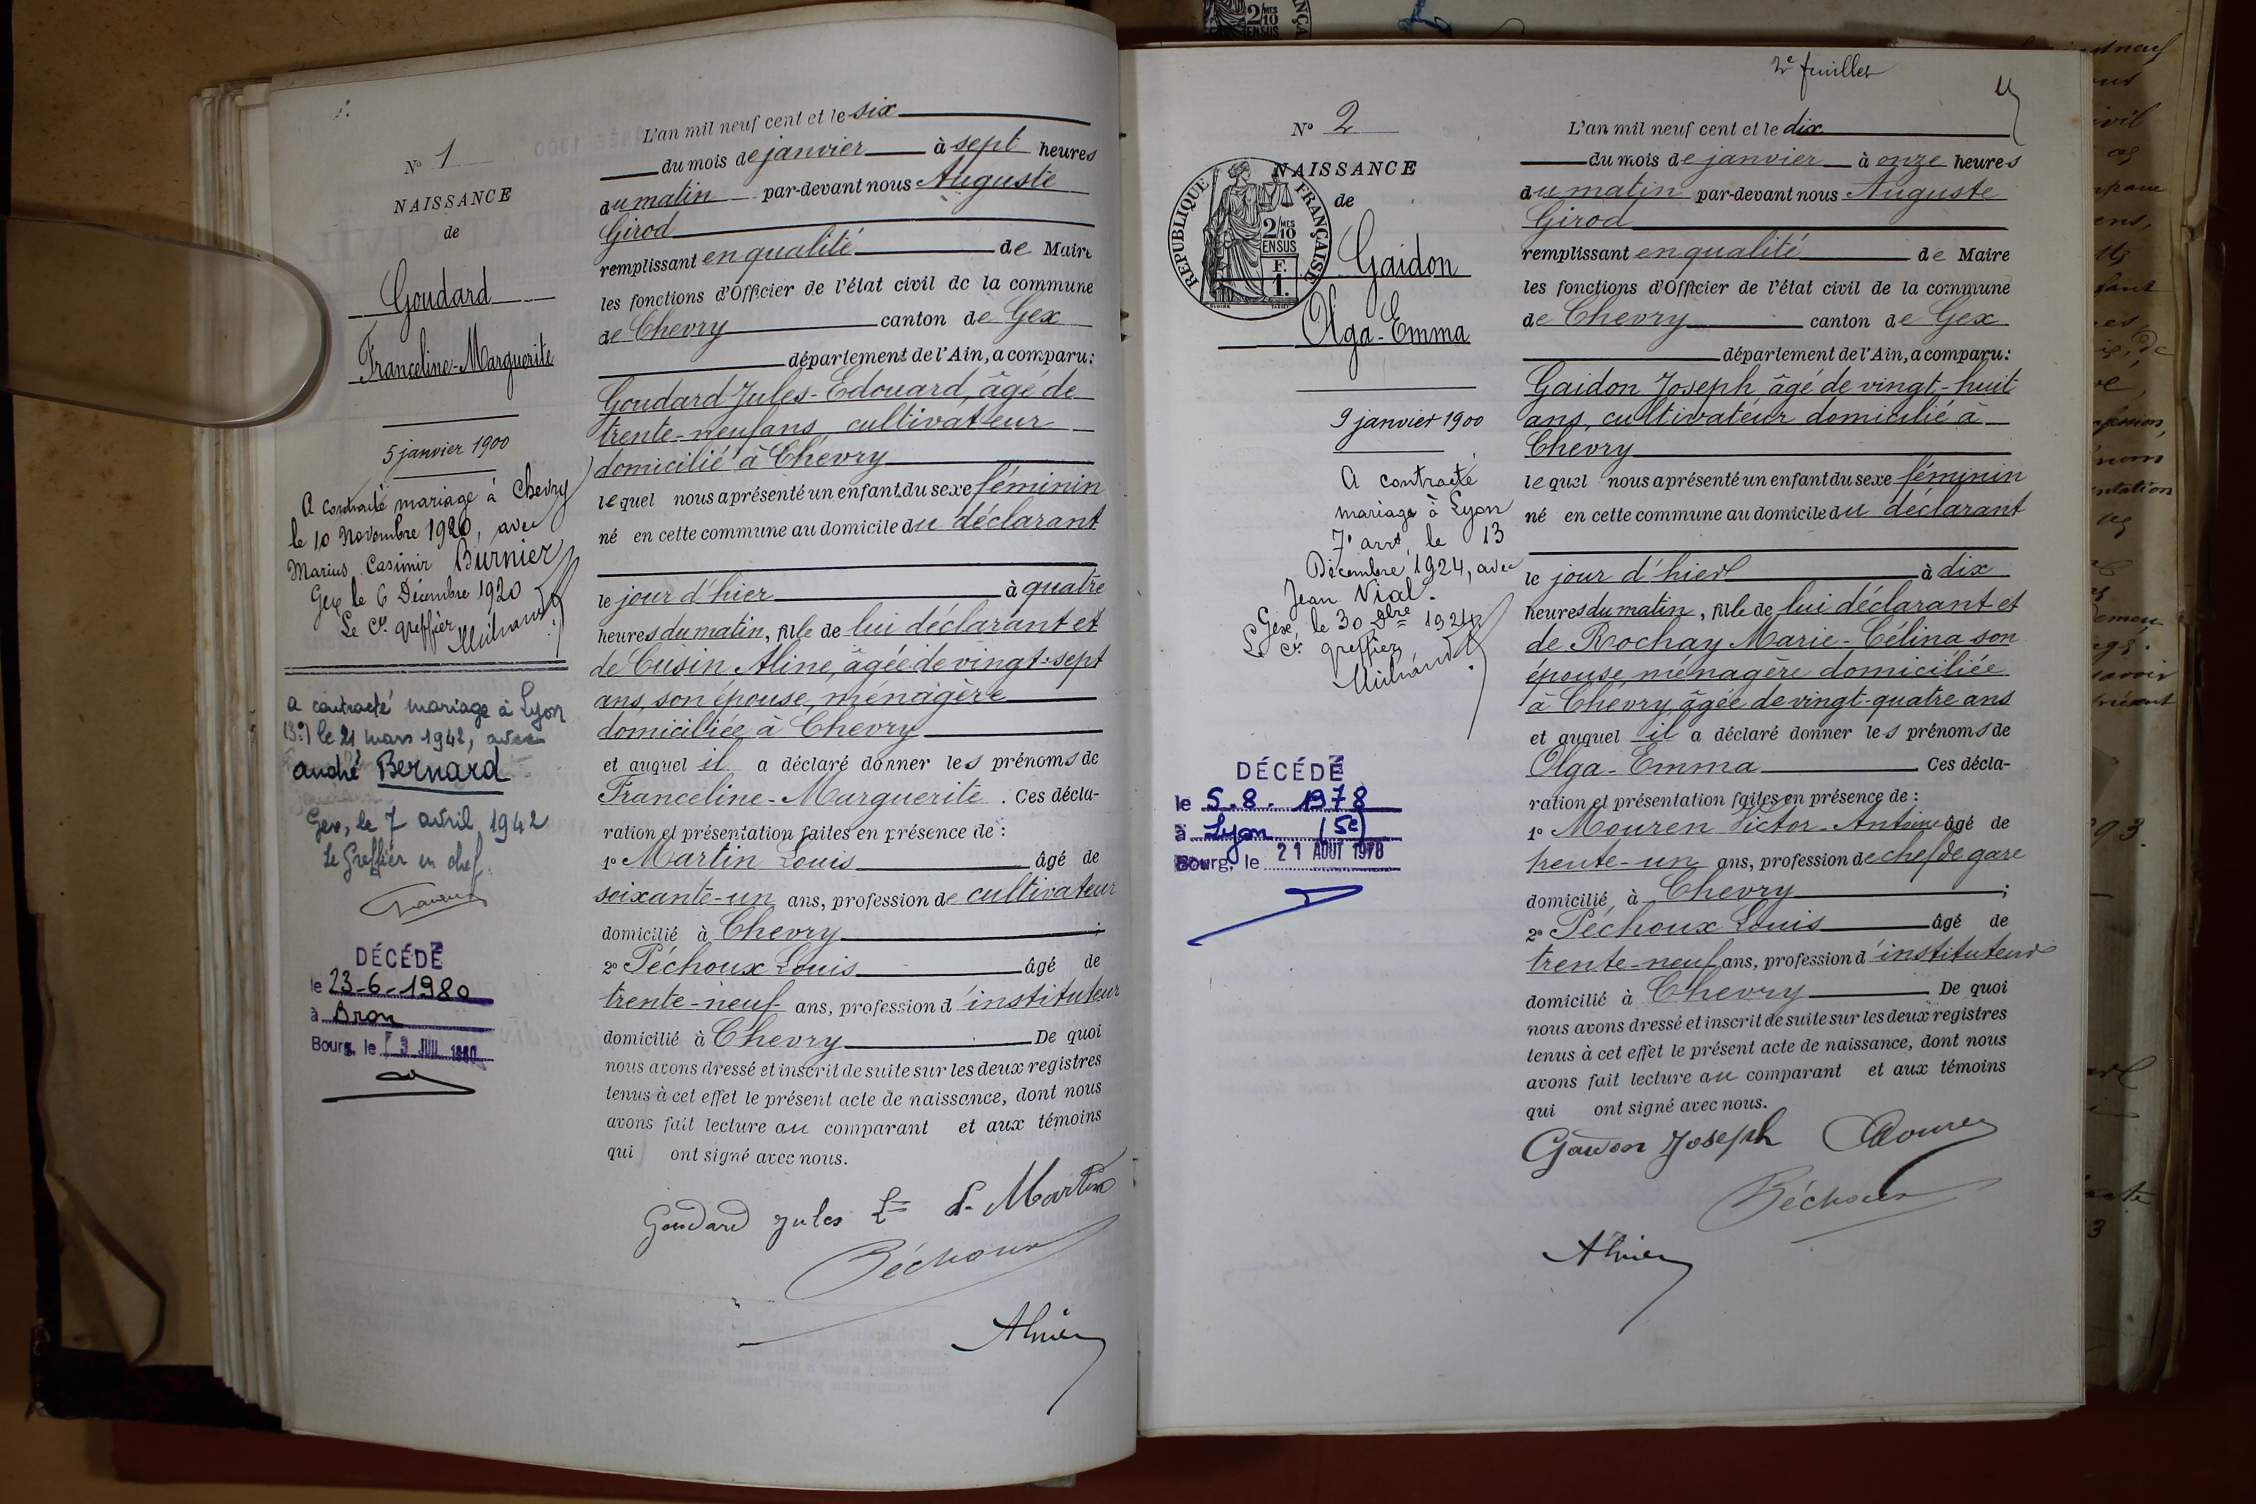 N° 1
NAISSANCE
de
Goudard
Franceline-Marguerite
5 janvier 1900
A contracté mariage à Chevry
le 10 Novembre 1920, avec
Marius Casimir Burnier
Gex le 6 Décembre 1920
Le Cs greffier
a contracté mariage à Lyon
(3e) le 21 mars 1942, avec
andré Bernard
Gex, le 7 avril 1942
Le Greffier en chef
DÉCÉDÉ
le 23-6-1980
à Bron
Bourg, le 3 JUIL 1980
L'an mil neuf cent et le six
du mois de janvier à sept heures
du matin par-devant nous Auguste
Girod
remplissant en qualité de Maire
les fonctions d'Officier de l'état civil de la commune
de Chevry canton de Gex
département de l'Ain, a comparu:
Goudard Jules-Edouard, âgé de
trente-neuf ans, cultivateur
domicilié à Chevry
lequel nous a présenté un enfant du sexe féminin
né en cette commune au domicile du déclarant
le jour d'hier à quatre
heures du matin, fille de lui déclarant et
de Cusin Aline, âgée de vingt-sept
ans, son épouse, ménagère
domiciliée à Chevry
et auquel il a déclaré donner les prénoms de
Franceline-Marguerite. Ces décla-
ration et présentation faites en présence de :
1° Martin Louis âgé de
soixante-un ans, profession de cultivateur
domicilié à Chevry ;
2° Péchoux Louis âgé de
trente-neuf ans, profession d'instituteur
domicilié à Chevry De quoi
nous avons dressé et inscrit de suite sur les deux registres
tenus à cet effet le présent acte de naissance, dont nous
avons fait lecture au comparant et aux témoins
qui ont signé avec nous.
Goudard Jules L. Martin
Péchoux
2e feuillet
N° 2
NAISSANCE
de
RÉPUBLIQUE FRANÇAISE
2/10 MES
EN SUS
F.
1.
Gaidon
Olga-Emma
9 janvier 1900
A contracté
mariage à Lyon
7e arrt, le 13
Décembre 1924, avec
Jean Vial.
Gex, le 30 Dbre 1924
Le Cs greffier
DÉCÉDÉ
le 5.8.1978
à Lyon (5e)
Bourg, le 21 AOUT 1978
L'an mil neuf cent et le dix
du mois de janvier à onze heures
du matin par-devant nous Auguste
Girod
remplissant en qualité de Maire
les fonctions d'Officier de l'état civil de la commune
de Chevry canton de Gex
département de l'Ain, a comparu:
Gaidon Joseph âgé de vingt-huit
ans, cultivateur domicilié à
Chevry
lequel nous a présenté un enfant du sexe féminin
né en cette commune au domicile du déclarant
le jour d'hier à dix
heures du matin, fille de lui déclarant et
de Rochay Marie-Célina son
épouse, ménagère domiciliée
à Chevry âgée de vingt-quatre ans
et auquel il a déclaré donner les prénoms de
Olga-Emma Ces décla-
ration et présentation faites en présence de :
1° Mouren Victor-Antoine âgé de
trente-un ans, profession de chef de gare
domicilié à Chevry ;
2° Péchoux Louis âgé de
trente-neuf ans, profession d'instituteur
domicilié à Chevry De quoi
nous avons dressé et inscrit de suite sur les deux registres
tenus à cet effet le présent acte de naissance, dont nous
avons fait lecture au comparant et aux témoins
qui ont signé avec nous.
Gaidon Joseph Mouren
Péchoux